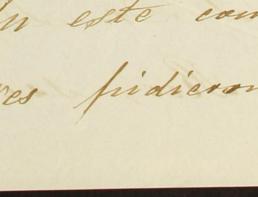 en este com
res pidieron